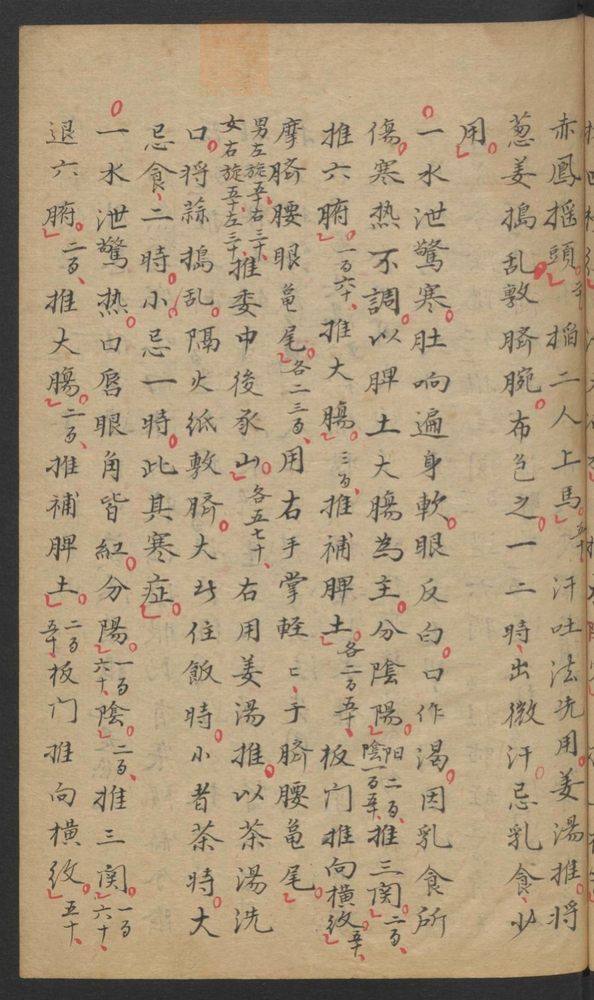 赤鳳摇頭。掐二人上馬。汗吐法先用姜湯推。将
葱姜搗乱敷臍腕。布包之。一二時出微汗。忌乳食少
用。
一水泄驚寒。肚响遍身軟。眼反白。口作渴。因乳食所
傷。寒热不調。以脾土大腸為主。分陰陽。阳二百陰一百五十推三関。二百
推六腑。一百六十推大腸。三百推補脾土。各二百五十板门推向横紋。五十
摩臍腰眼龟尾。各二三百用右手掌軽〻于臍腰龟尾。
男左旋五十右三十女右旋五十左三十推委中後承山。各五七十右用姜湯推。以茶湯洗
口。将蒜搗乱。隔火紙敷臍。大以住飯時。小者茶時。大
忌食二時。小忌一時。此其寒症。
一水泄驚热。口唇眼角皆紅。分陽。一百六十陰。二百推三関。一百六十
退六腑。二百推大腸。二百推補脾土。二百五十板门推向横紋。五十